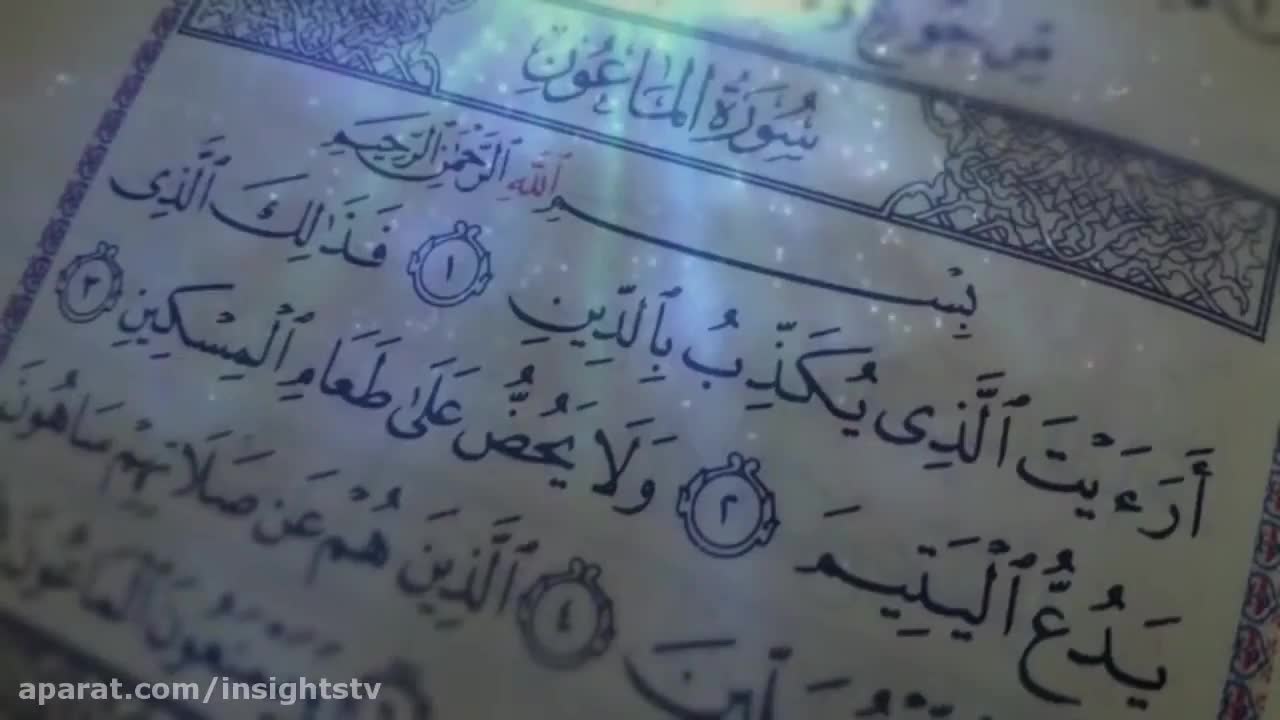 سُورَةُ المَاعُونِ
بِسْمِ ٱللَّهِ ٱلرَّحْمَٰنِ ٱلرَّحِيمِ
أَرَءَيْتَ ٱلَّذِى يُكَذِّبُ بِٱلدِّينِ ١ فَذَٰلِكَ ٱلَّذِى
يَدُعُّ ٱلْيَتِيمَ ٢ وَلَا يَحُضُّ عَلَىٰ طَعَامِ ٱلْمِسْكِينِ ٣
٤ ٱلَّذِينَ هُمْ عَن صَلَاتِهِمْ سَاهُونَ
ٱلْمَاعُونَ
aparat.com/insightstv